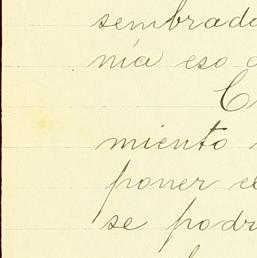 sembrado
nía eso
C
miento
poner el
se podr